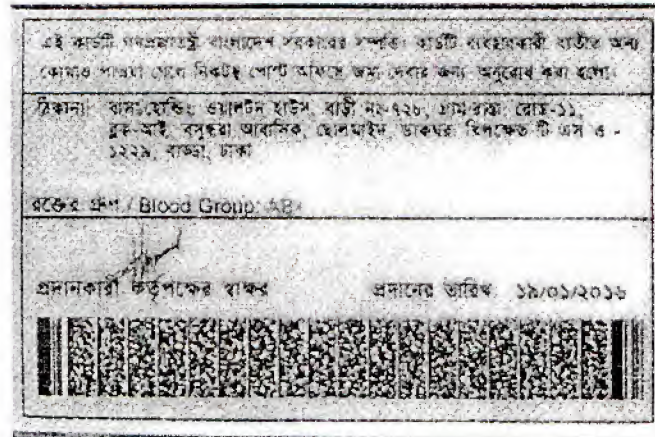 এই কার্ডটি গণপ্রজাতন্ত্রী বাংলাদেশ সরকারের সম্পত্তি। কার্ডটি ব্যবহারকারী ব্যতীত অন্য
কোথাও পাওয়া গেলে নিকটস্থ পোস্ট অফিসে জমা দেবার জন্য অনুরোধ করা হলো।
ঠিকানা: বাসা/হোল্ডিং: ওয়ালটন হাউস, বাড়ী নং-৭২৮, গ্রাম/রাস্তা: রোড-১১,
ব্লক-আই, বসুন্ধরা আবাসিক, ছোলমাইদ, ডাকঘর: খিলক্ষেত টি এস ও -
১২২৯, বাড্ডা, ঢাকা
রক্তের গ্রুপ / Blood Group: AB+
প্রদানকারী কর্তৃপক্ষের স্বাক্ষর
প্রদানের তারিখ: ১৯/০১/২০১৬